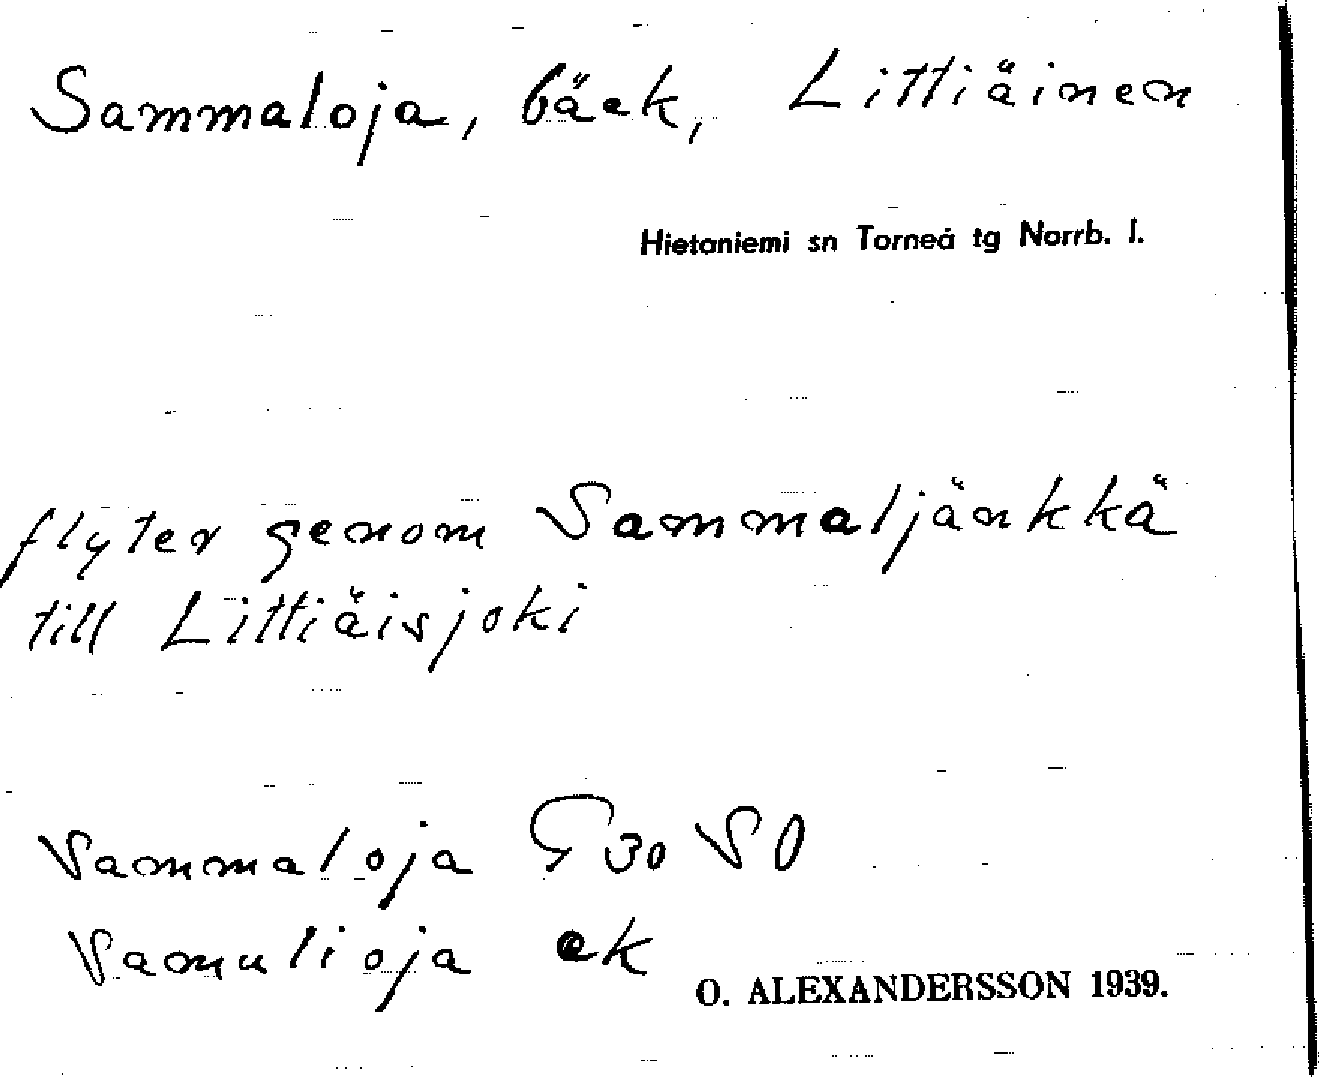 Sammaloja, bäck, Littiäinen
Hietaniemi sn Torneå tg Norrb. l.
flyter genom Sammaljänkkä
till Littiäisjoki
Sammaloja G 30 SO
Samulioja ek
O. ALEXANDERSSON 1939.